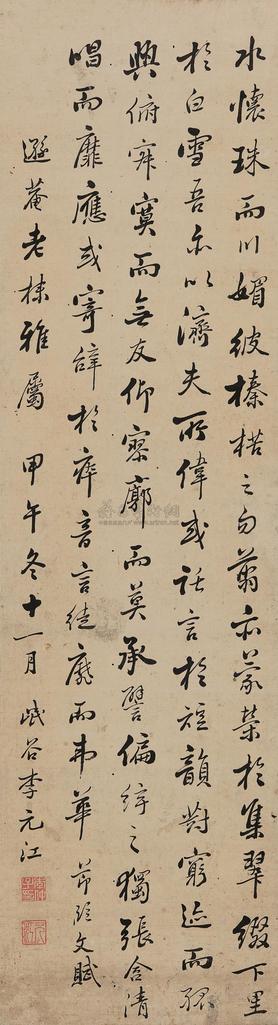 水懷珠而川媚彼榛楛之勿翦亦蒙榮於集翠綴下里
於白雪吾亦以濟夫所偉或託言於短韻對窮迹而孤
興俯寂寞而無友仰寥廓而莫承譬偏絃之獨張含清
唱而靡應或寄辭於瘁音言徒靡而弗華 節臨文賦
菴老棣雅屬 甲午冬十一月 岷谷李元江